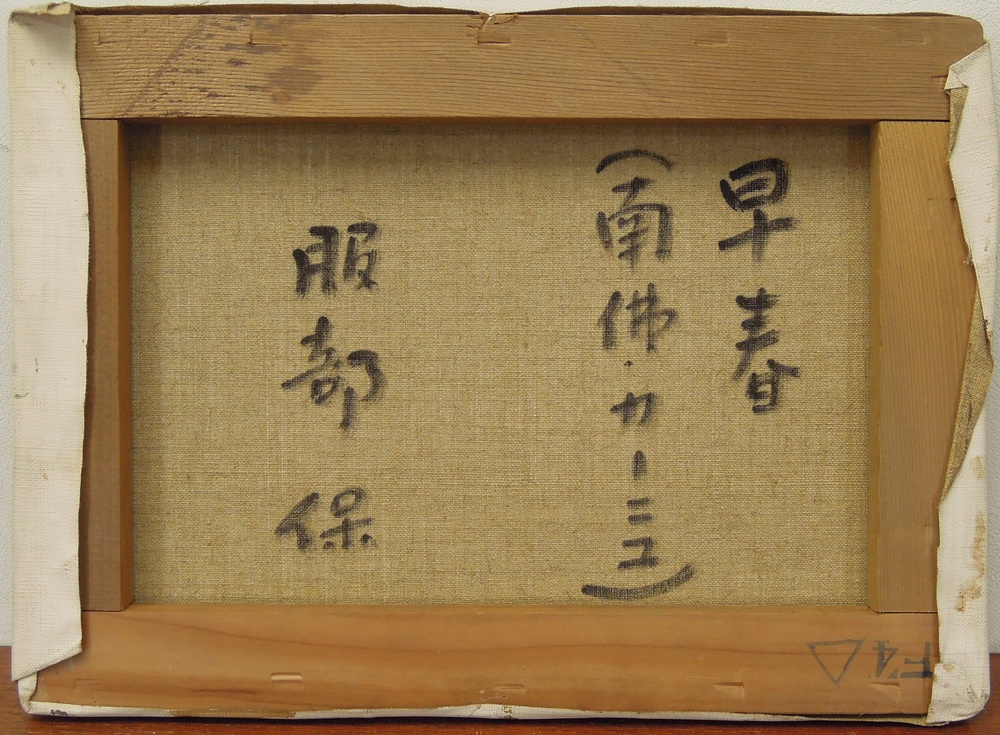 早春
（南佛・カーニュ）
服部 保
F4